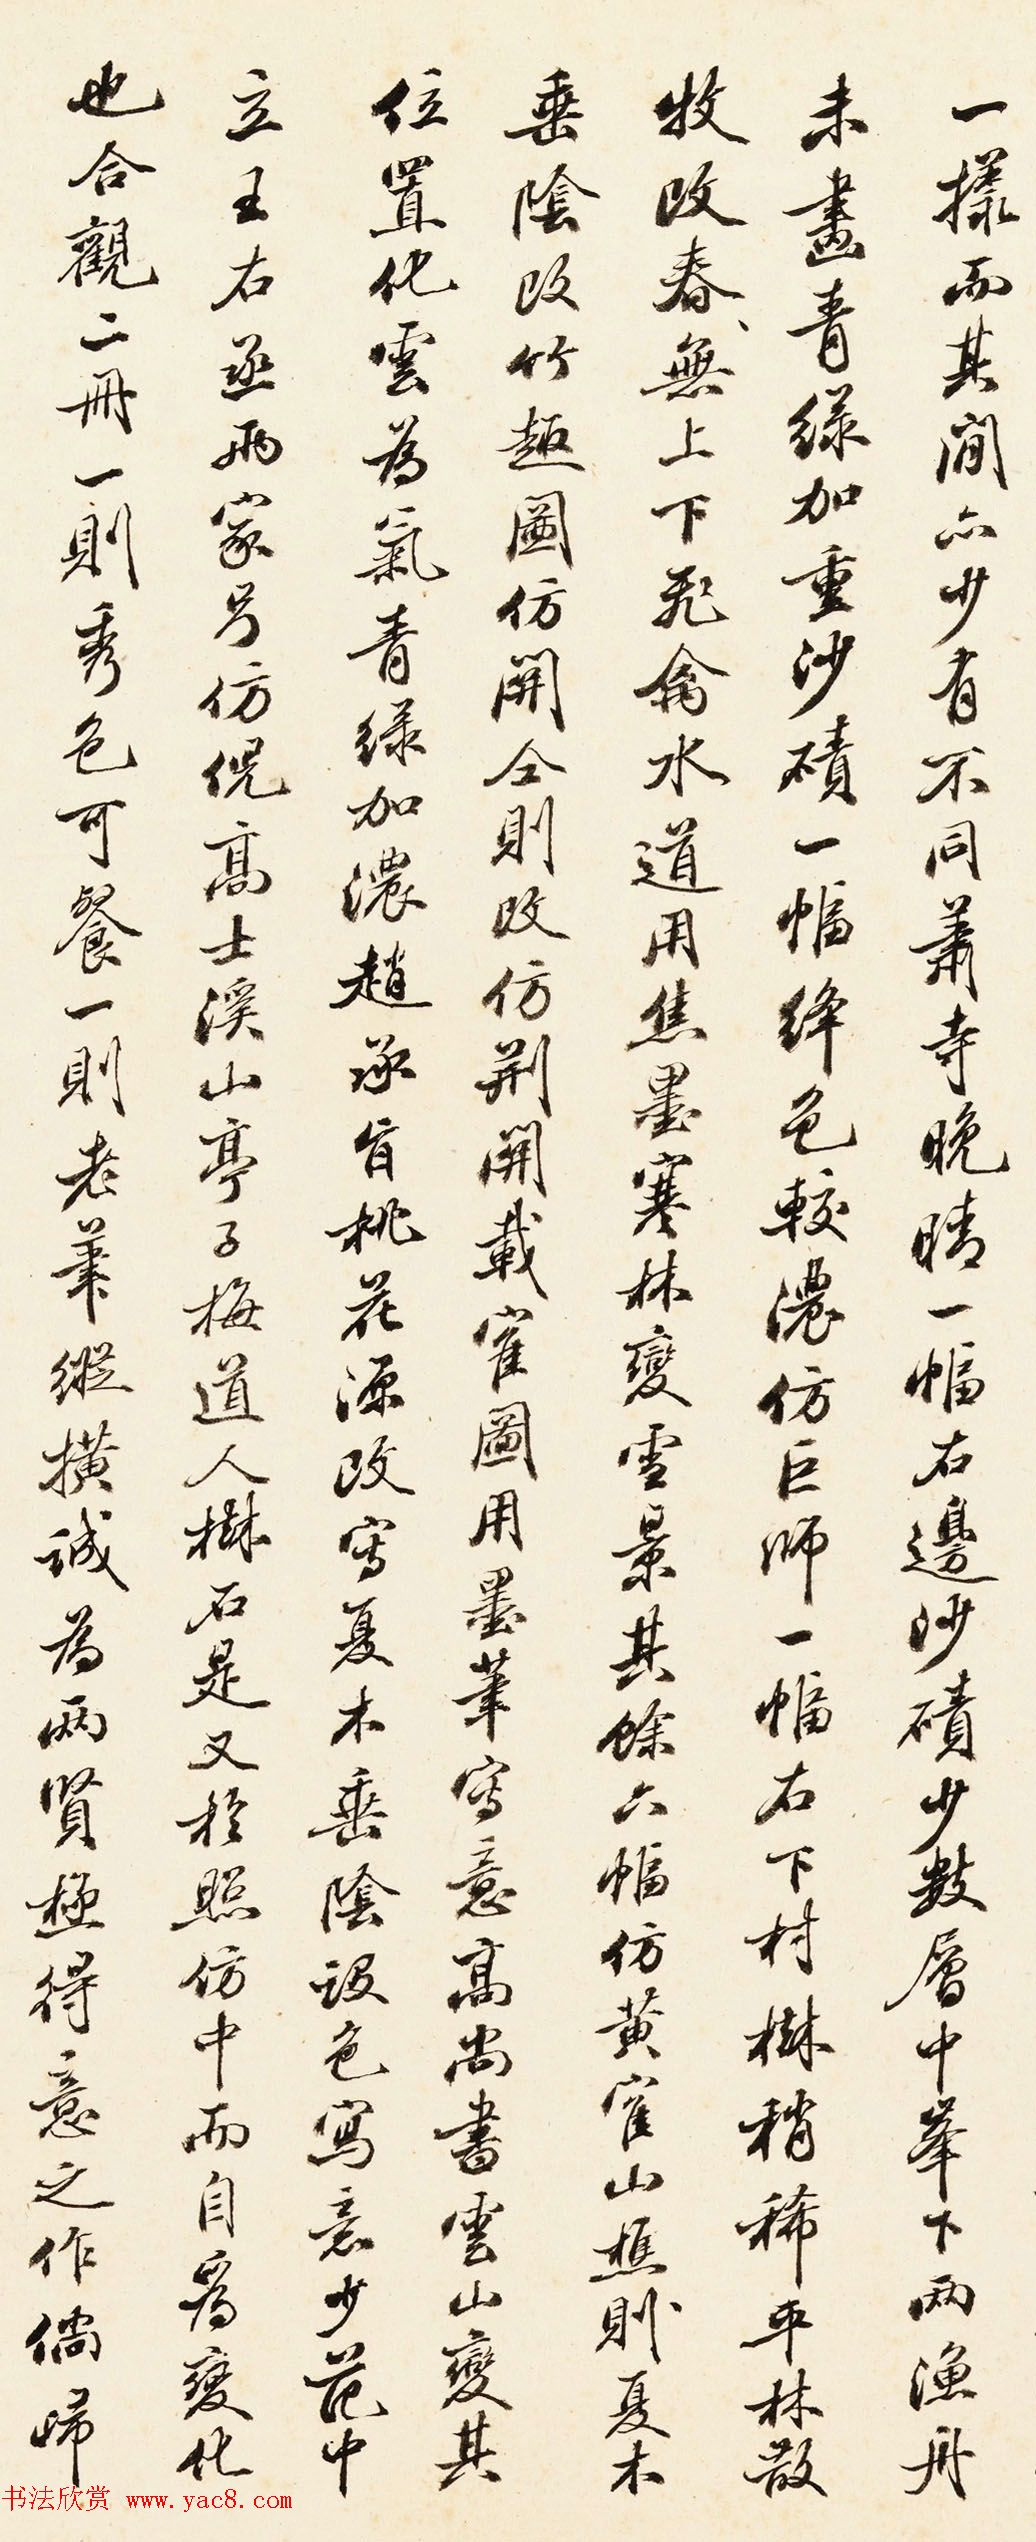 一樣而其間亦少有不同蕭寺晚晴一幅右邊沙磧少數層中峯下兩漁舟
未畫青綠加重沙磧一幅絳色較濃仿巨師一幅右下村樹稍稀平林散
牧改春無上下飛禽水道用焦墨寒林變雪景其餘六幅仿黃崔山樵則夏木
垂陰改竹趣圖仿關仝則改仿荆關載崔圖用墨筆寫意高尚書雲山變其
位置化雲為氣青綠加濃趙承旨桃花源改寫夏木垂陰設色寫意少范中
立王右丞兩家另仿倪高士溪山亭子梅道人樹石是又於照仿中而自為變化
也合觀二冊一則秀色可餐一則老筆縱橫誠為兩賢極得意之作倘歸
书法欣赏 www.yac8.com